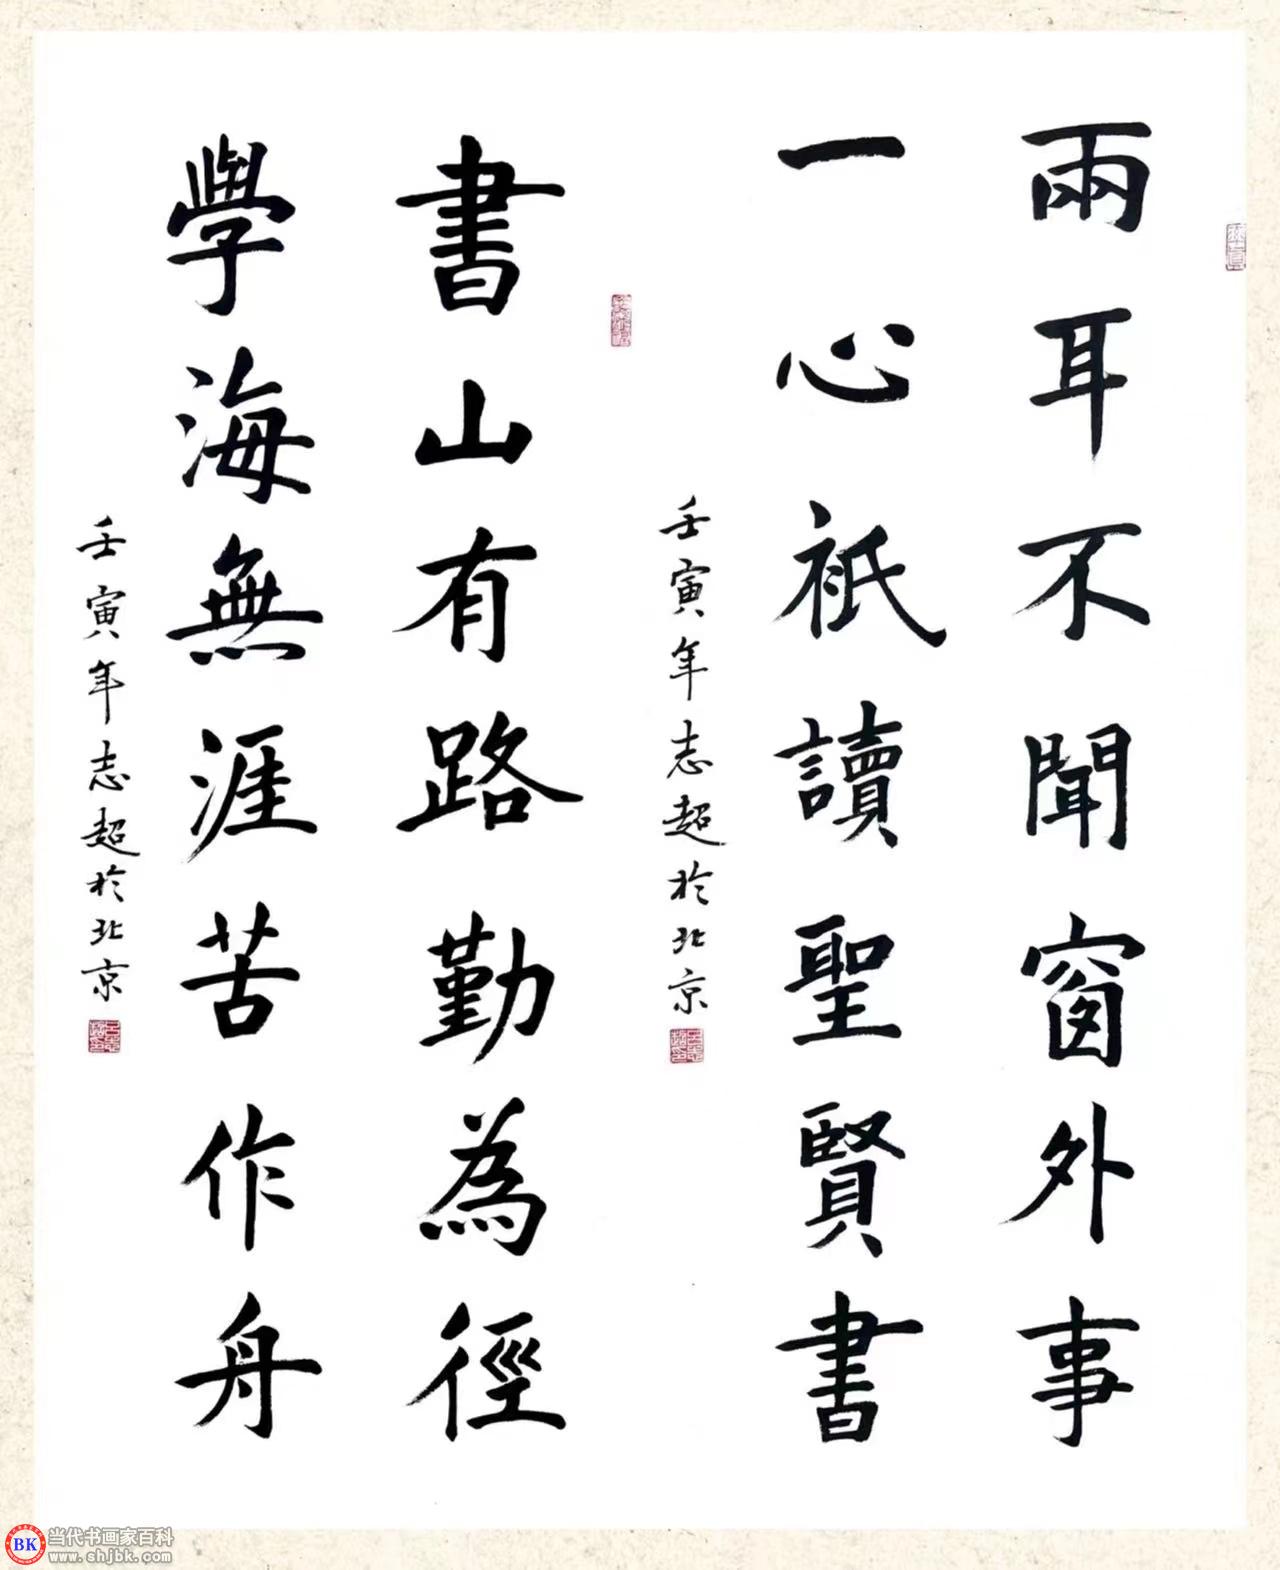 兩耳不聞窗外事
一心祇讀聖賢書
壬寅年志超於北京
書山有路勤為徑
學海無涯苦作舟
壬寅年志超於北京
BK
当代书画家百科
www.shjbk.com